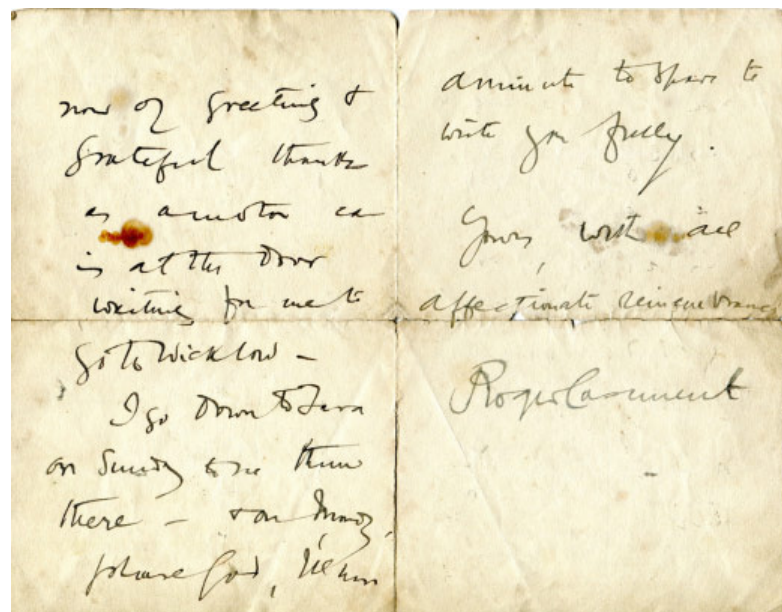 now of greeting &
grateful thanks
as a motor car
is at the door
waiting for me to
go to Wicklow –
I go down to Tara
on Sunday to see them
there – & on Monday,
please God, I'll have
a minute to spare to
write you fully.
Yours, with all
affectionate remembrance
Roger Casement